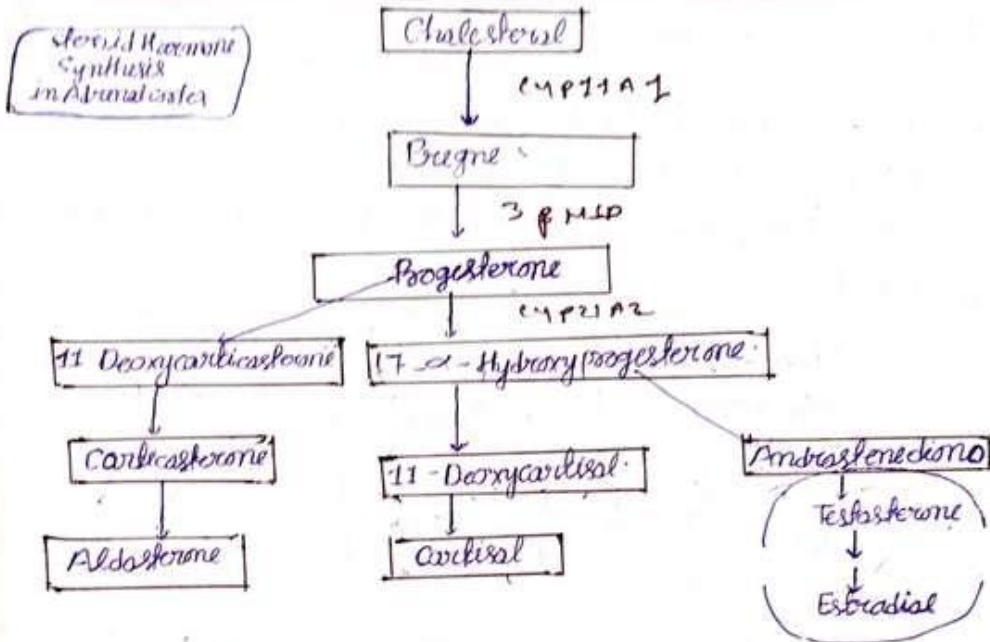 Steroid Harmone
Synthesis
in Adrenal
Cholesterol
CYP11A1
Pregne
3 β HSD
Progesterone
CYP21A2
11 Deoxycorticosterone
17-α-Hydroxyprogesterone.
Corticosterone
11-Deoxycortisol.
Androstenedione
Testosterone
Aldosterone
Cortisol
Estradiol